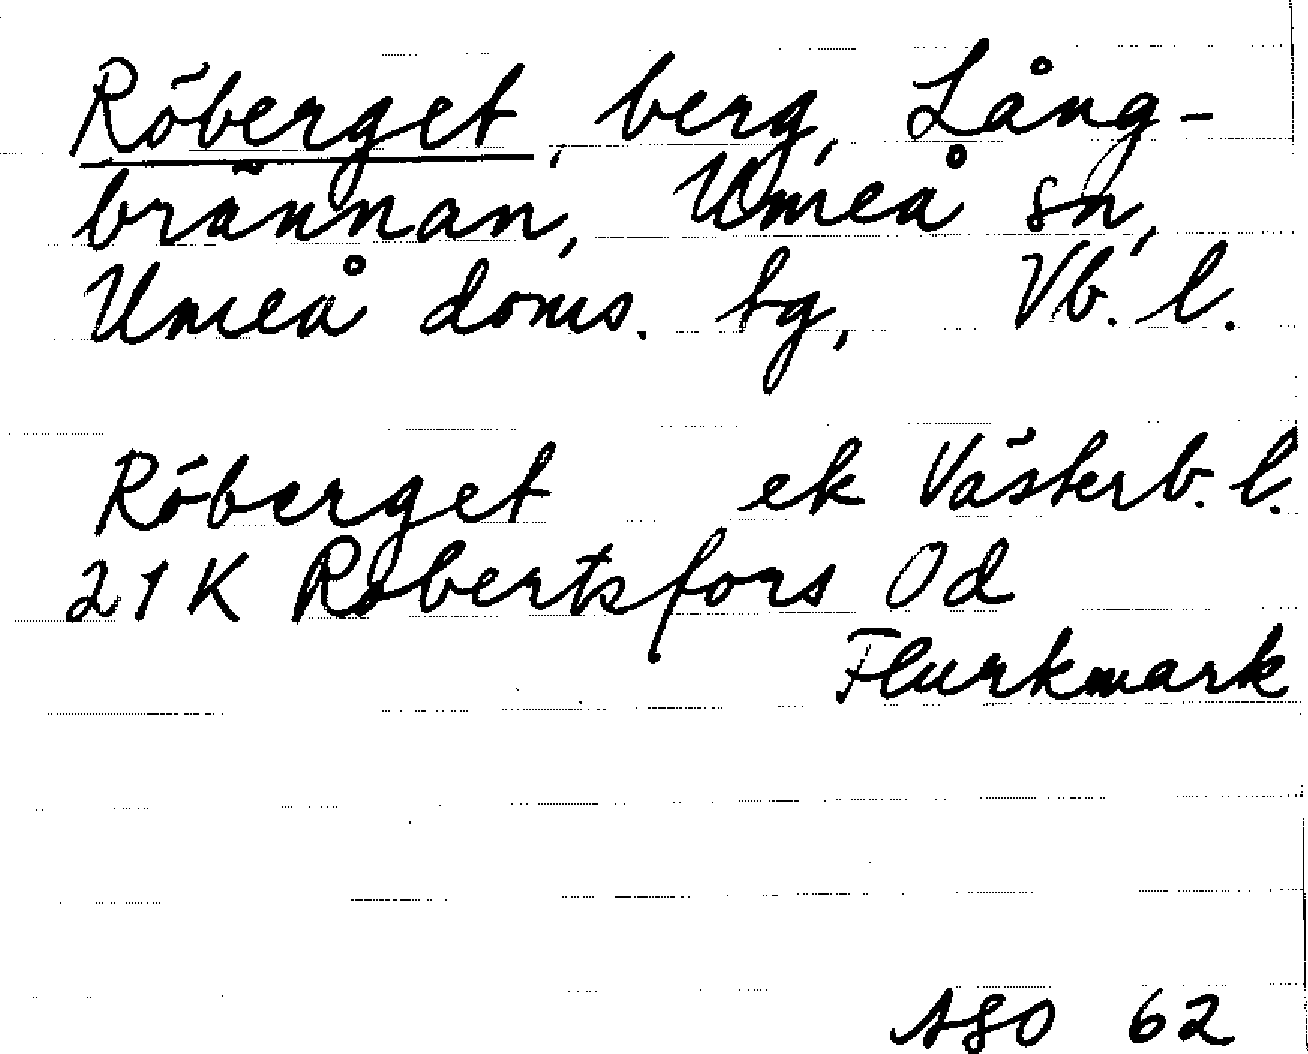 Röberget, berg, Lång-
brännan, Umeå sn,
Umeå doms. tg, Vb. l.
Röberget ek Västerb. l.
21K Robertsfors 0d
Flurkmark
ASO 62